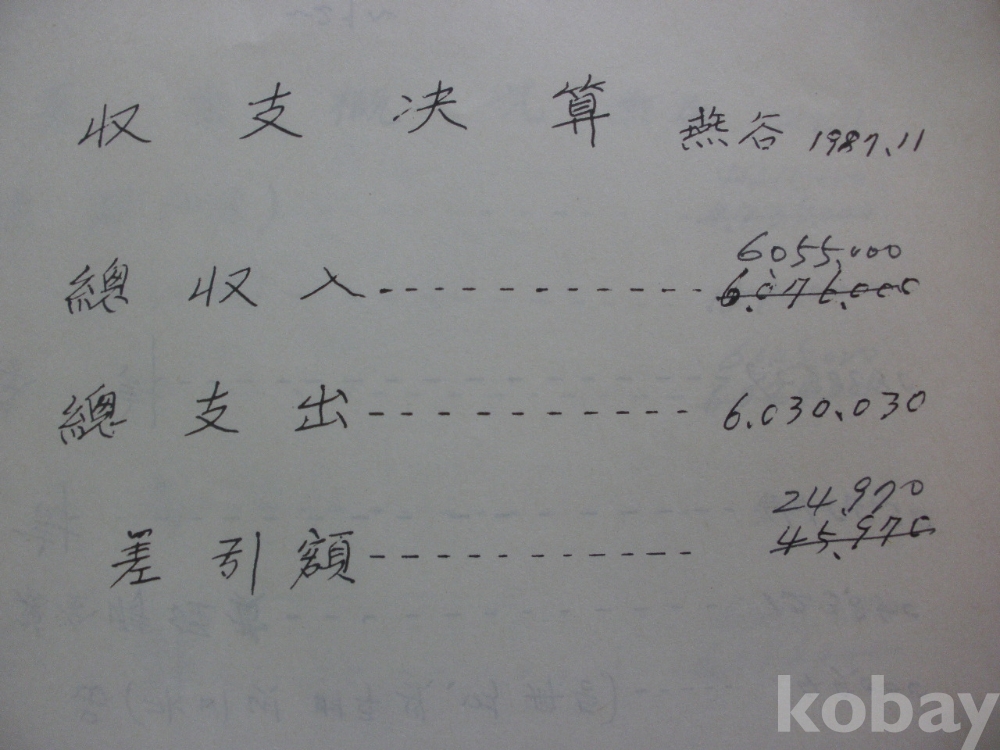 收支決算 燕谷 1987.11
6.055.000
總收入 6.076.000
總支出 6.030.030
24.970
差引額 45.970
kobay